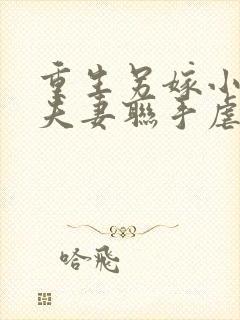 重生另嫁小
夫妻聯手虐
哈飛